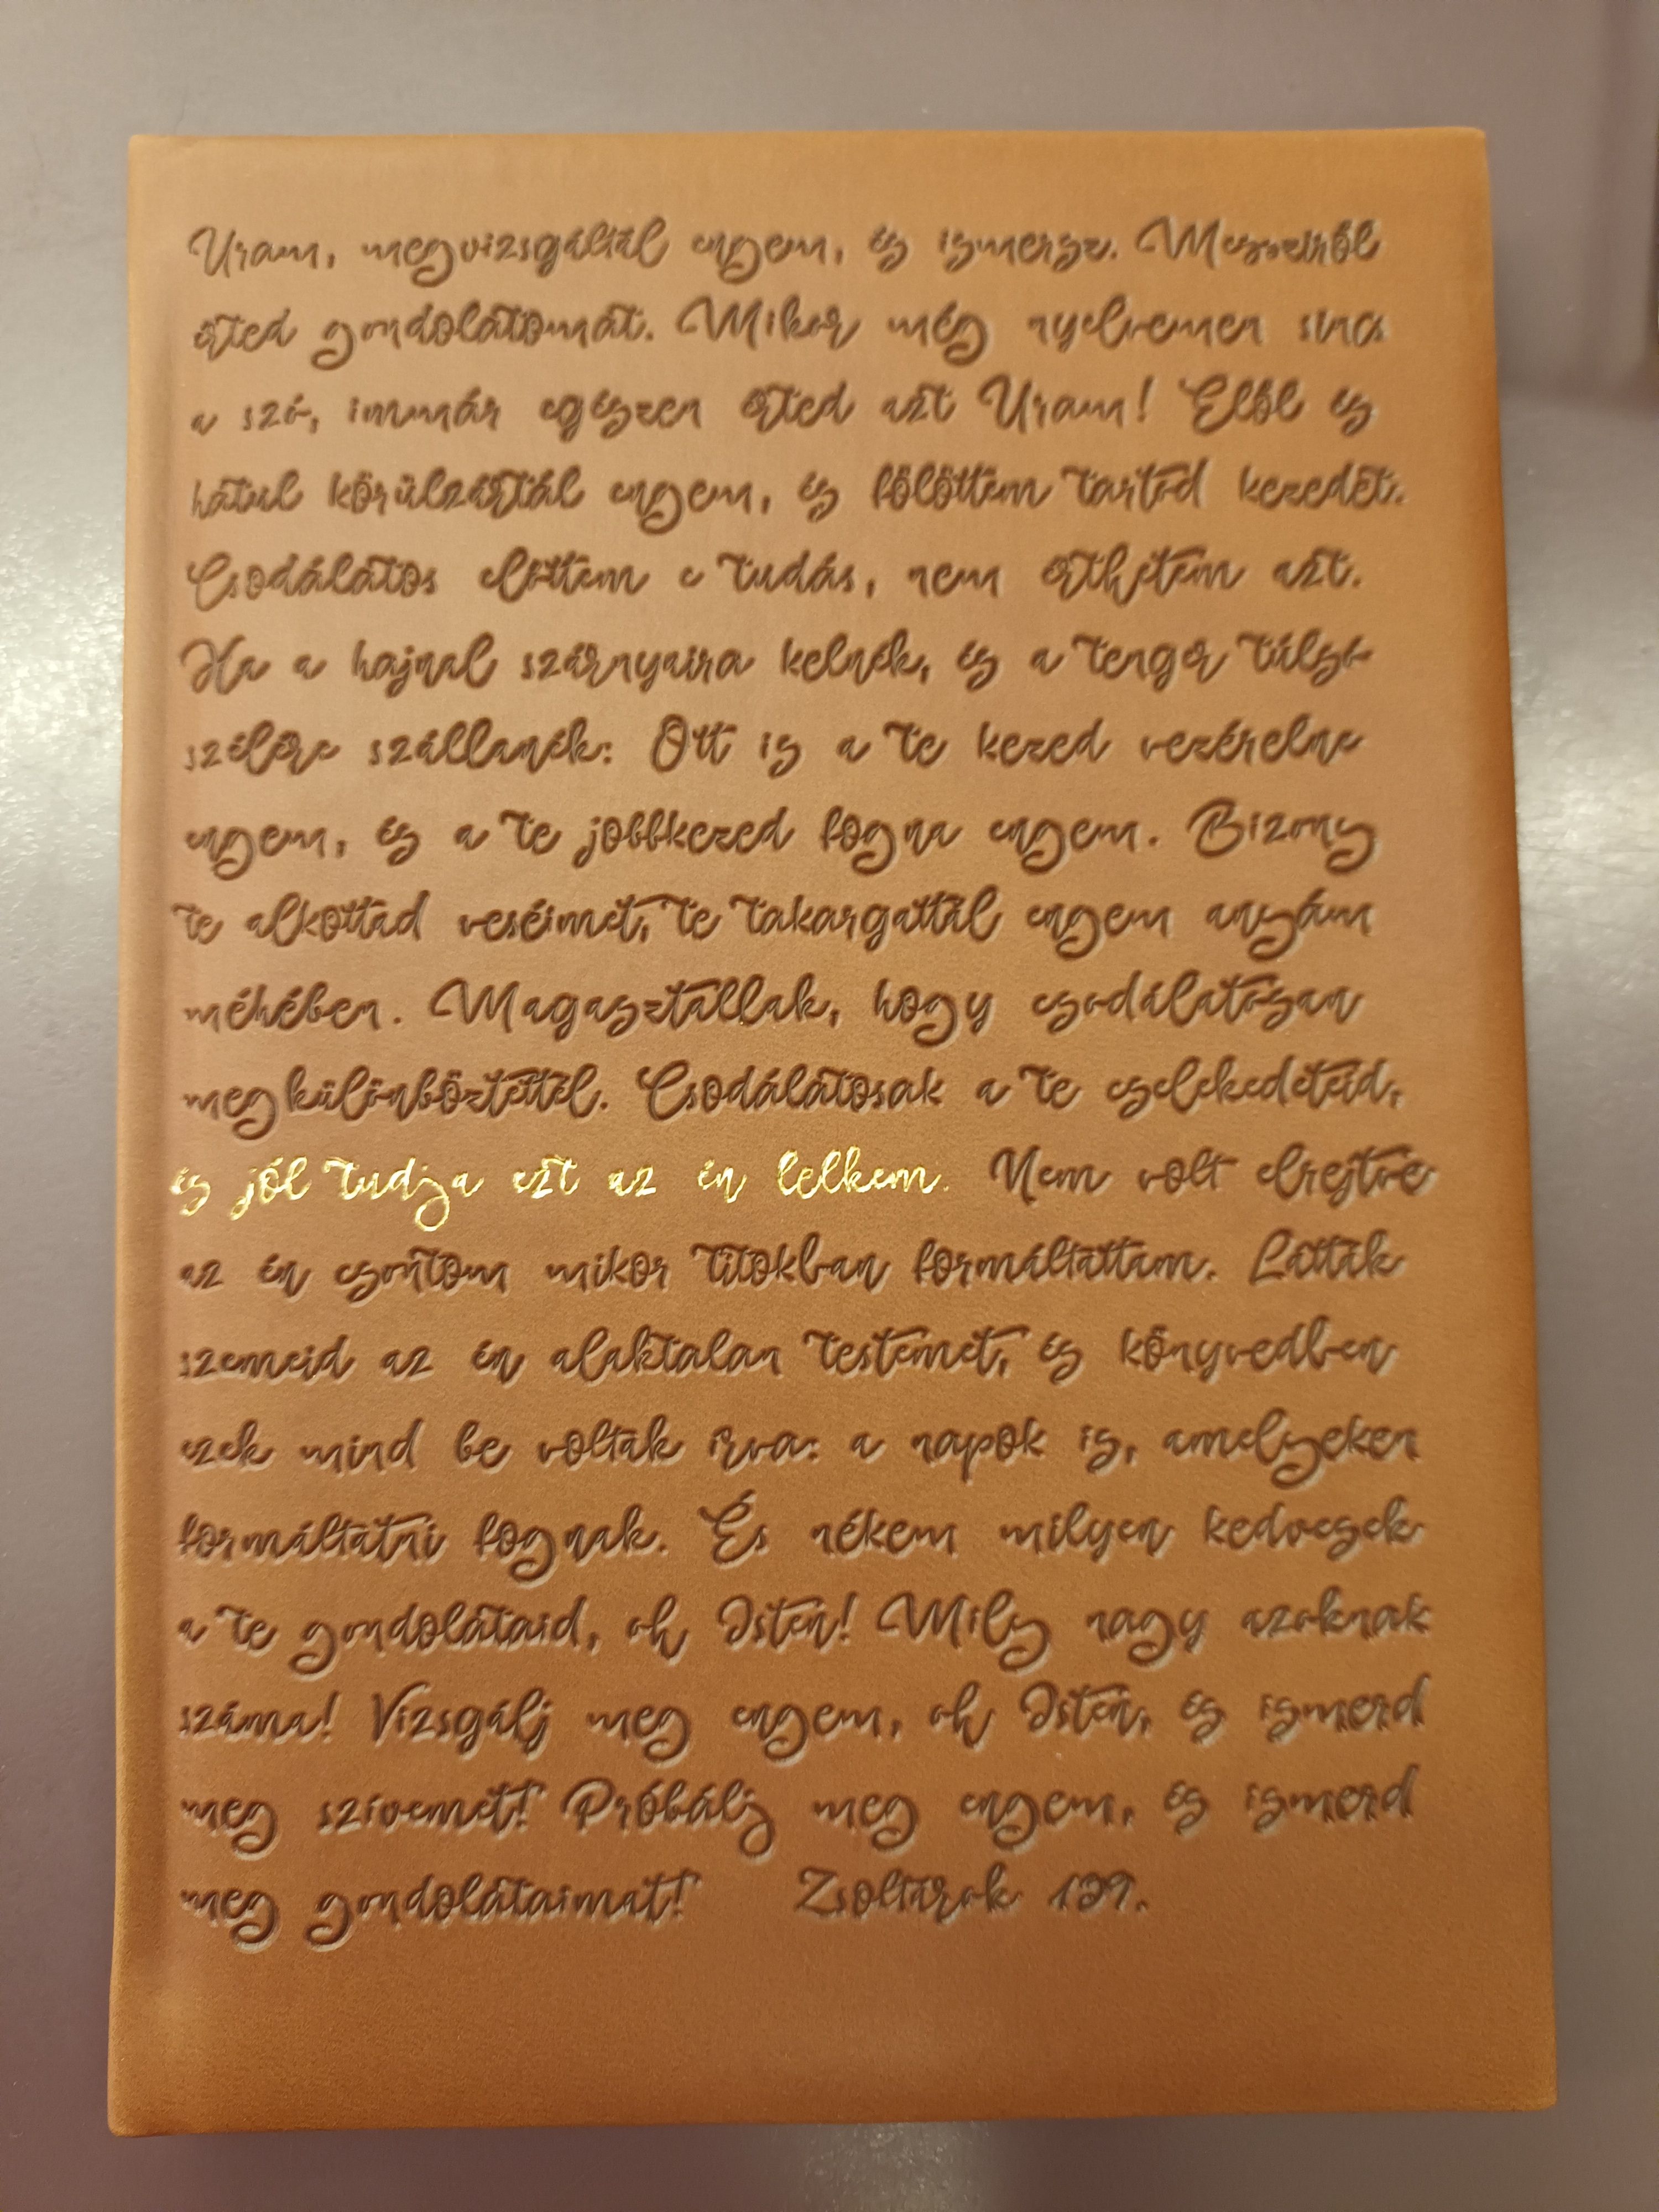 Uram, megvizsgáltál engem, és ismersz. Messziről
érted gondolatomat. Mikor még nyelvemen sincs
a szó, immár egészen érted azt Uram! Elől és
hátul körülzártál engem, és fölöttem tartod kezedet.
Csodálatos előttem e tudás, nem érthetem azt.
Ha a hajnal szárnyaira kelnék, és a tenger túlsó
szélére szállanék: Ott is a te kezed vezérelne
engem, és a te jobbkezed fogna engem. Bizony
te alkottad veséimet, te takargattál engem anyám
méhében. Magasztallak, hogy csodálatosan
megkülönböztettél. Csodálatosak a te cselekedeteid,
és jól tudja ezt az én lelkem. Nem volt elrejtve
az én csontom mikor titokban formáltattam. Látták
szemeid az én alaktalan testemet, és könyvedben
ezek mind be voltak írva: a napok is, amelyeken
formáltatni fognak. És nékem milyen kedvesek
a te gondolataid, oh Isten! Mily nagy azoknak
száma! Vizsgálj meg engem, oh Isten, és ismerd
meg szívemet! Próbálj meg engem, és ismerd
meg gondolataimat! Zsoltárok 139.